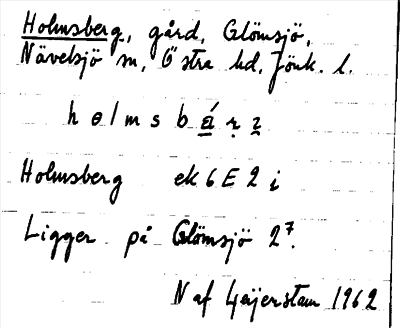 Holmsberg, gård, Glömsjö,
Nävelsjö sn, Östra hd, Jönk. l.
h o l m s b
Holmsberg ek 6 E 2 i
Ligger på Glömsjö 2⁷.
N af Geijerstam 1962